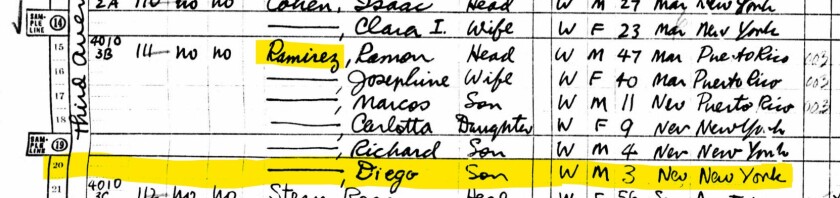 2A 110 no no Cohen, Isaac Head W M 27 Mar New York
SAMPLE LINE 14 ———, Clara I. Wife W F 23 Mar New York
15 4010 3B 111 no no Ramirez, Ramon Head W M 47 Mar Puerto Rico
16 ———, Josephine Wife W F 40 Mar Puerto Rico
17 ———, Marcos Son W M 11 Nev Puerto Rico
18 ———, Carlotta Daughter W F 9 Nev New York
SAMPLE LINE 19 ———, Richard Son W M 4 Nev New York
20 ———, Diego Son W M 3 Nev New York
21 4010 112 no no Head W F
Third Ave